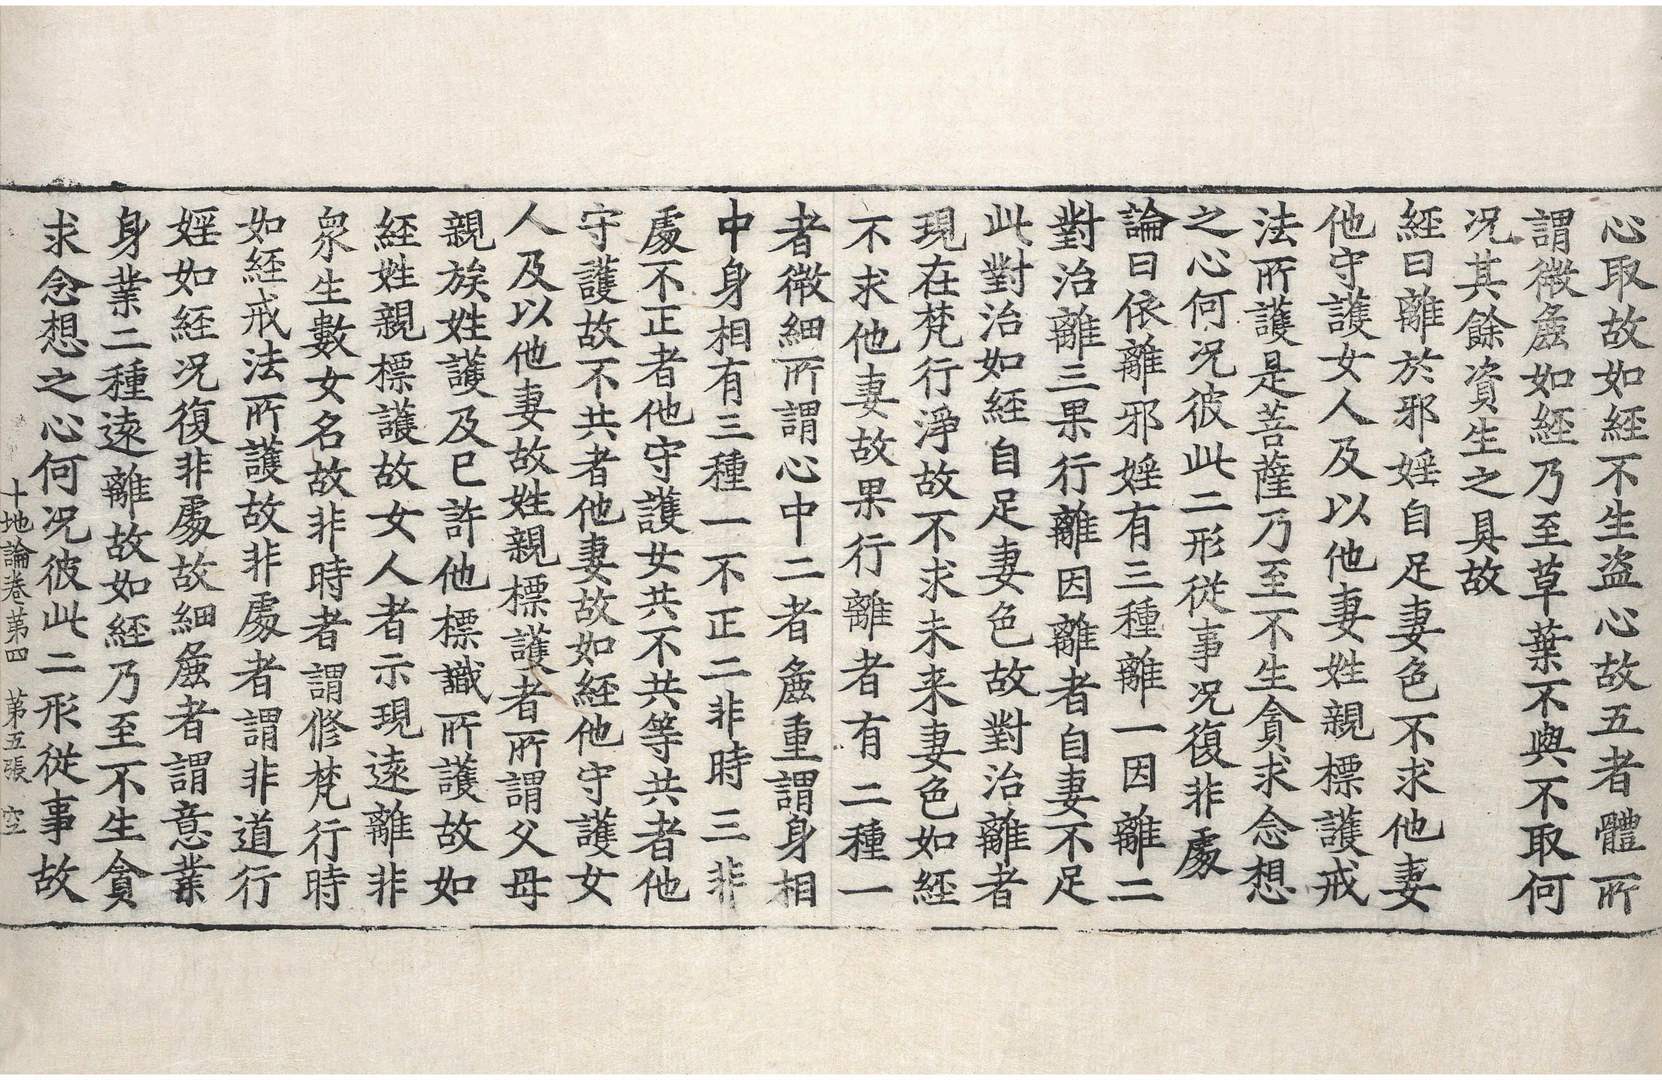 心取故如經不生盗心故五者體所
謂微麁如經乃至草葉不與不取何
况其餘資生之具故
經曰離於邪婬自足妻色不求他妻
他守護女人及以他妻姓親標護戒
法所護是菩薩乃至不生貪求念想
之心何况彼此二形從事况復非處
論曰依離邪婬有三種離一因離二
對治離三果行離因離者自妻不足
此對治如經自足妻色故對治離者
現在梵行淨故不求未来妻色如經
不求他妻故果行離者有二種一
者微細所謂心中二者麁重謂身相
中身相有三種一不正二非時三非
處不正者他守護女共不共等共者他
守護故不共者他妻故如經他守護女
人及以他妻故姓親標護者所謂父母
親族姓護及已許他標識所護故如
經姓親標護故女人者示現遠離非
衆生數女名故非時者謂修梵行時
如經戒法所護故非處者謂非道行
婬如經况復非處故細麁者謂意業
身業二種遠離故如經乃至不生貪
求念想之心何况彼此二形從事故
十地論卷第四 第五張 空